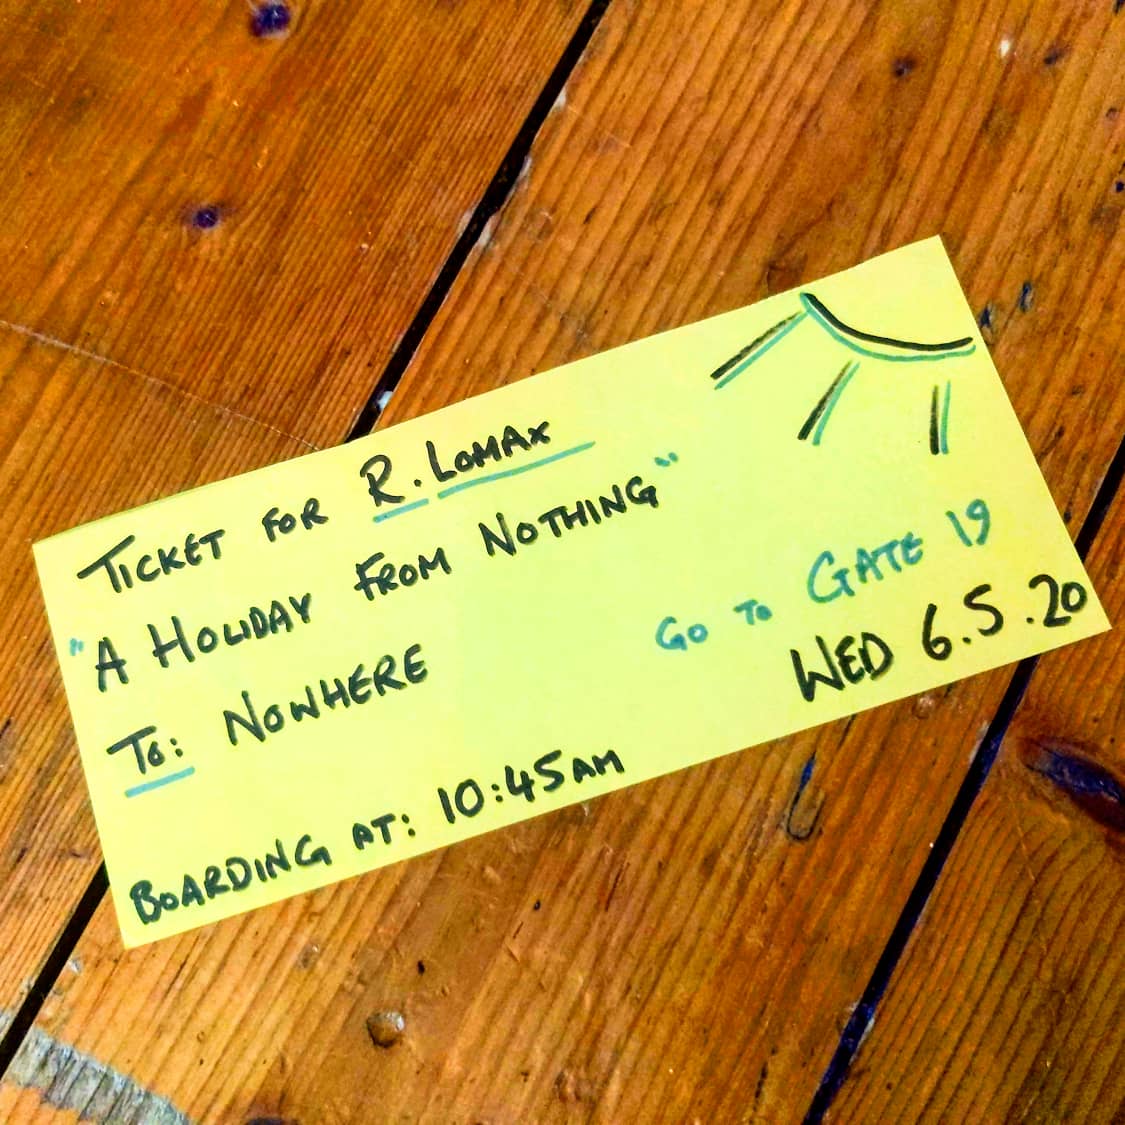 TICKET FOR R. LOMAX
"A HOLIDAY FROM NOTHING"
TO: NOWHERE
BOARDING AT: 10:45AM
GO TO GATE 19
WED 6.5.20